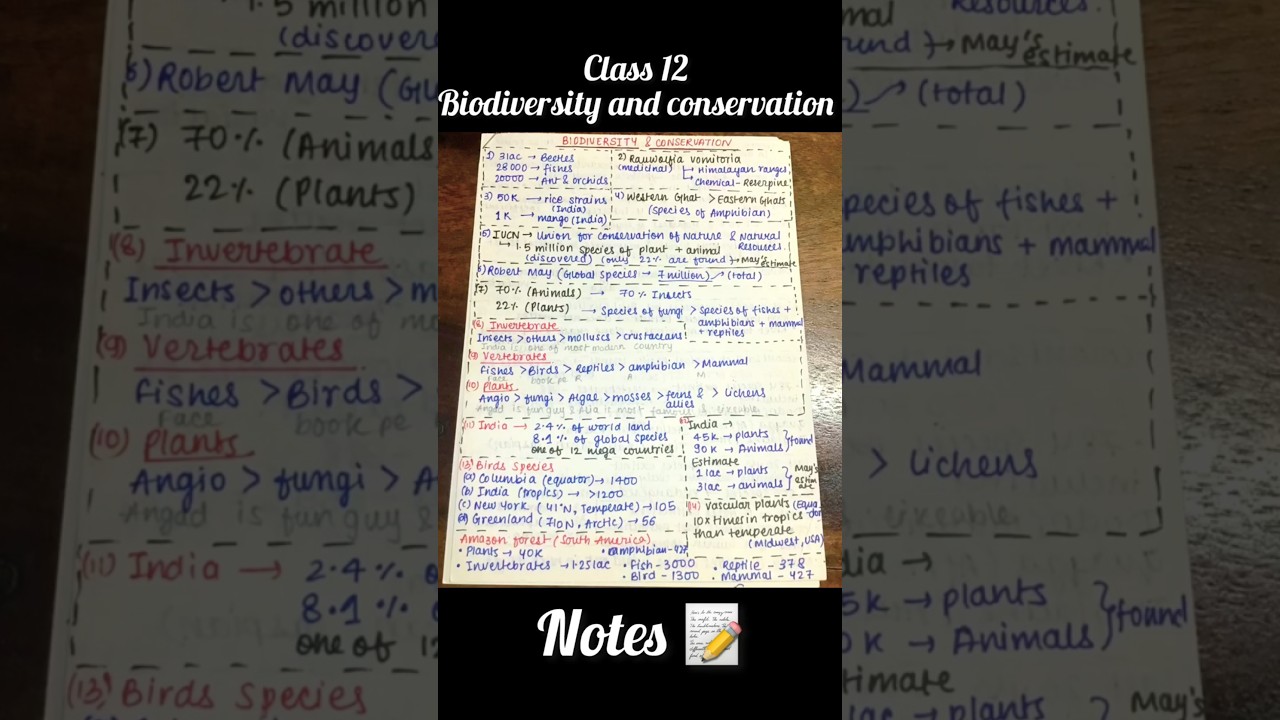 Class 12
Biodiversity and conservation
BIODIVERSITY & CONSERVATION
1) 3lac → Beetles
28000 → fishes
20000 → Ant & orchids
2) Rauwolfia vomitoria
(medicinal) → Himalayan ranges
→ chemical - Reserpine
3) 50K → rice strains
(India)
1K → mango (India)
4) Western Ghat > Eastern Ghats
(Species of Amphibian)
5) IUCN → Union for conservation of Nature & Natural Resources.
↳ 1.5 million species of plant + animal
(discovered) (only 22% are found) → May's estimate
6) Robert May (Global Species → 7 million) → (total)
(7) 70% (Animals) → 70% Insects
22% (Plants) → Species of fungi > Species of fishes + amphibians + mammal + reptiles
(8) Invertebrate
Insects > others > molluscs > crustaceans
India is one of most modern country
(9) Vertebrates
Fishes > Birds > Reptiles > amphibian > Mammal
Face book pe R A M
(10) Plants
Angio > fungi > Algae > mosses > ferns & allies > lichens
Angad is fun guy & Alia is most famous & likeable
(11) India → 2.4% of world land
8.1% of global species
one of 12 mega countries
India →
45K → plants
90K → Animals } found
Estimate
1 lac → plants
3lac → animals } May's estimate
(13) Birds Species
(a) Columbia (equator) → 1400
(b) India (tropics) → >1200
(c) New York (41°N, Temperate) → 105
(d) Greenland (71°N, Arctic) → 56
(14) Vascular plants
10x times in tropics
than temperate
(Midwest, USA)
Amazon forest (South America)
• Plants → 40K
• Invertebrates → 1.25lac
• amphibian - 427
• Fish - 3000
• Bird - 1300
• Reptile - 378
• Mammal - 427
Notes